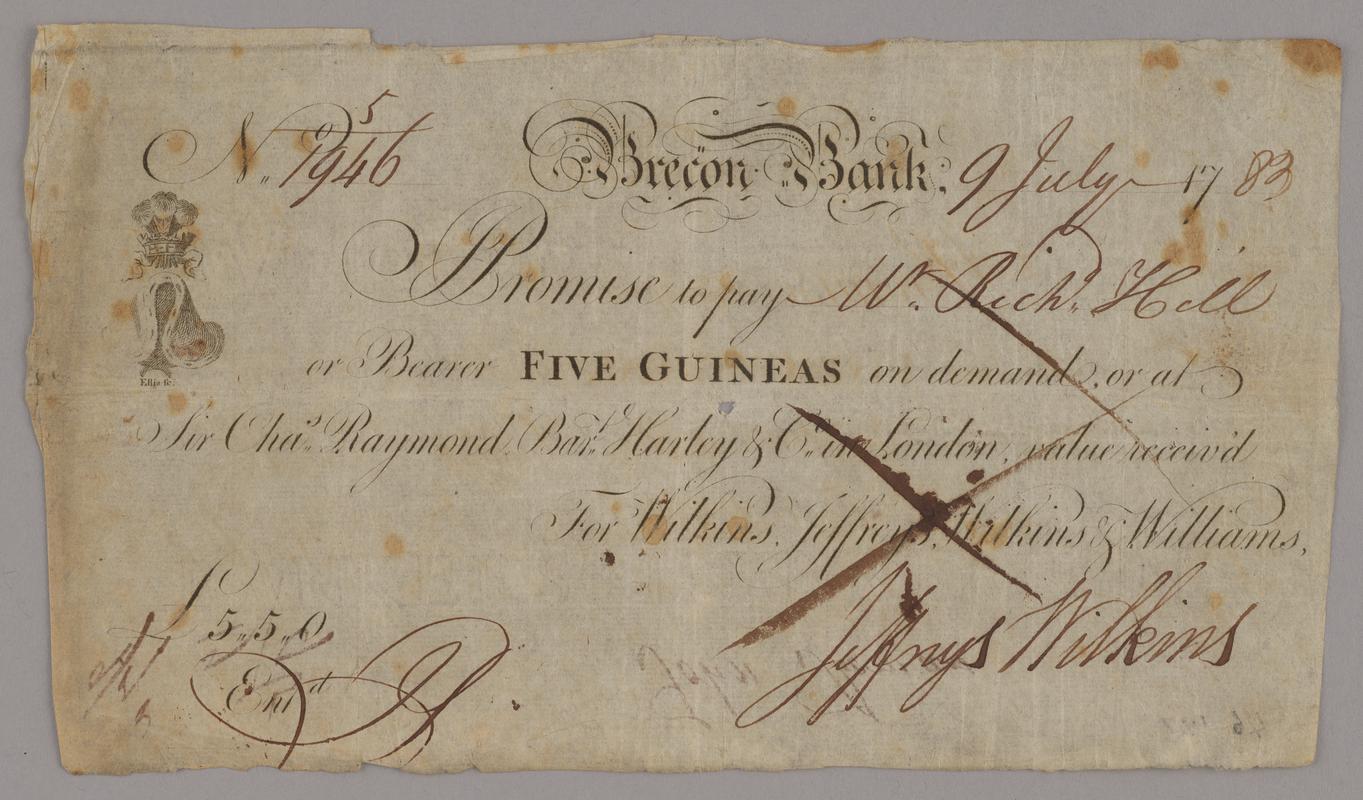 5
No. 1946 Brecon Bank, 9 July 1783
I Promise to pay Mr. Richd. Hill
or Bearer FIVE GUINEAS on demand, or at
Ellis sc.
Sir Chas. Raymond Bart. Harley & Co. in London, value receiv'd
For Wilkins, Jeffreys, Wilkins & Williams,
£5„5„0
Jeffreys Wilkins
Entd